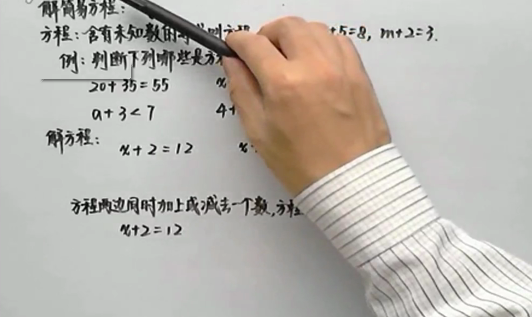 解简易方程：
方程：含有未知数的 +5=8, m+2=3.
例：判断下列哪些是方
20+35=55
a+3<7 4+
解方程：
x+2=12
方程两边同时加上或减去一个数，方程
x+2=12